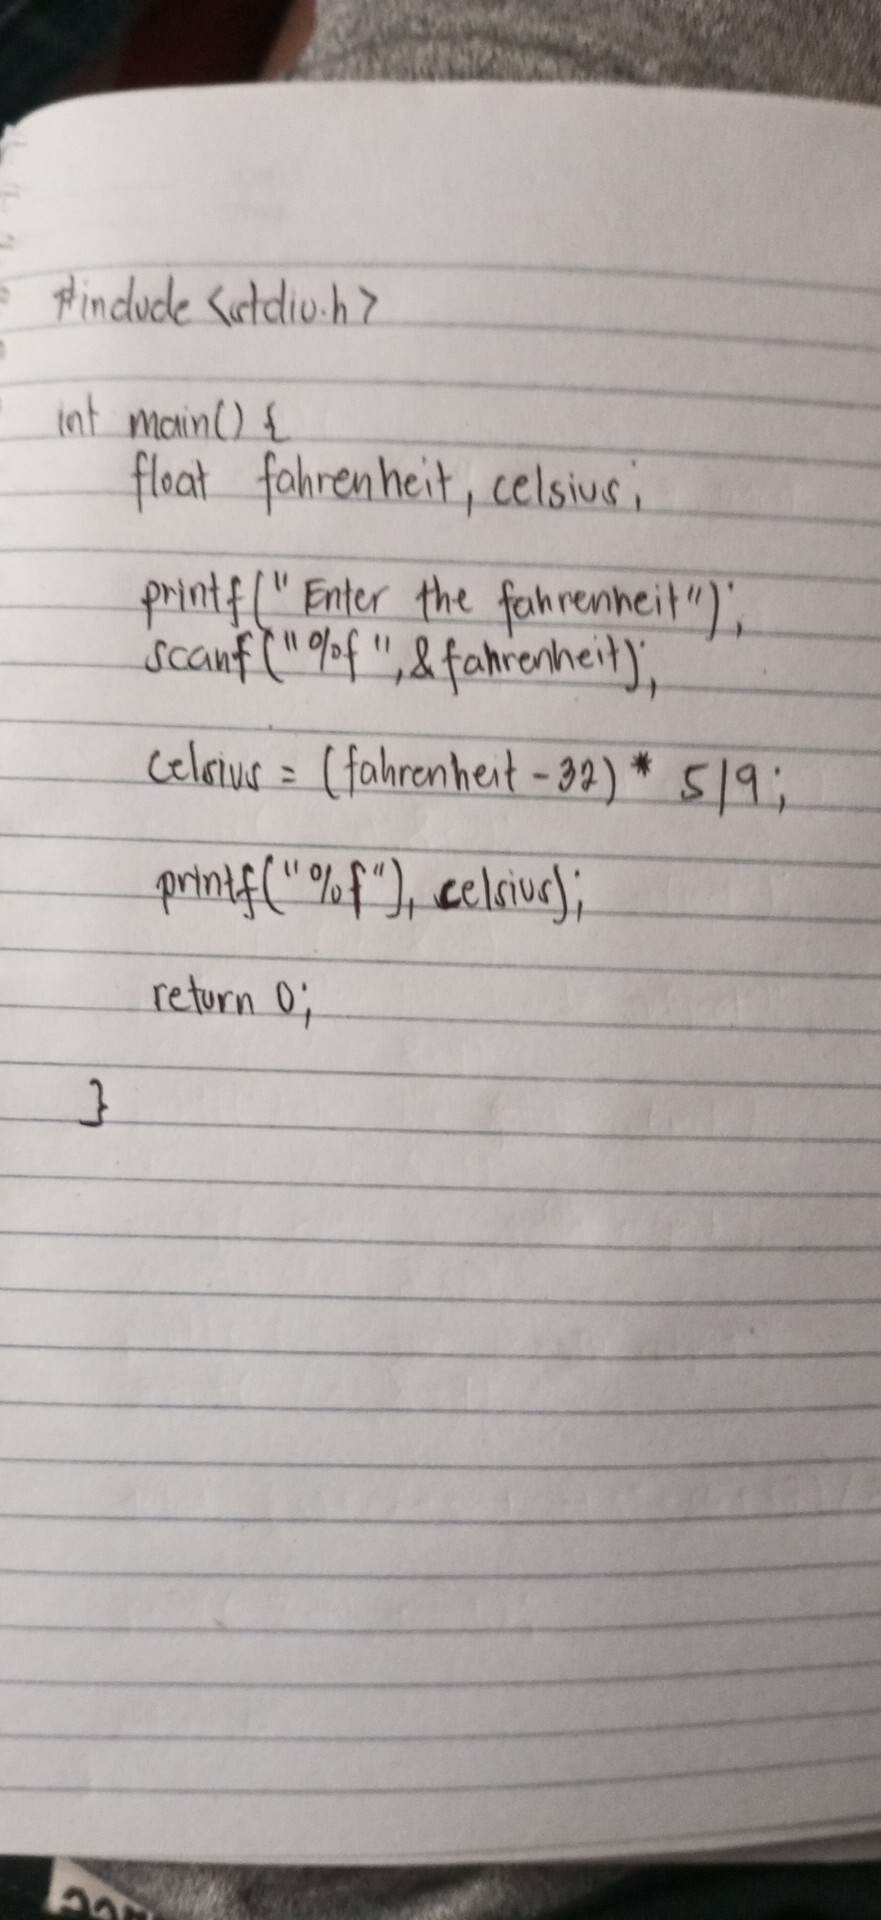 #include <stdio.h>
int main() {
float fahrenheit, celsius;
printf("Enter the fahrenheit");
scanf("%f", &fahrenheit);
celsius = (fahrenheit - 32) * 5/9;
printf("%f"), celsius);
return 0;
}